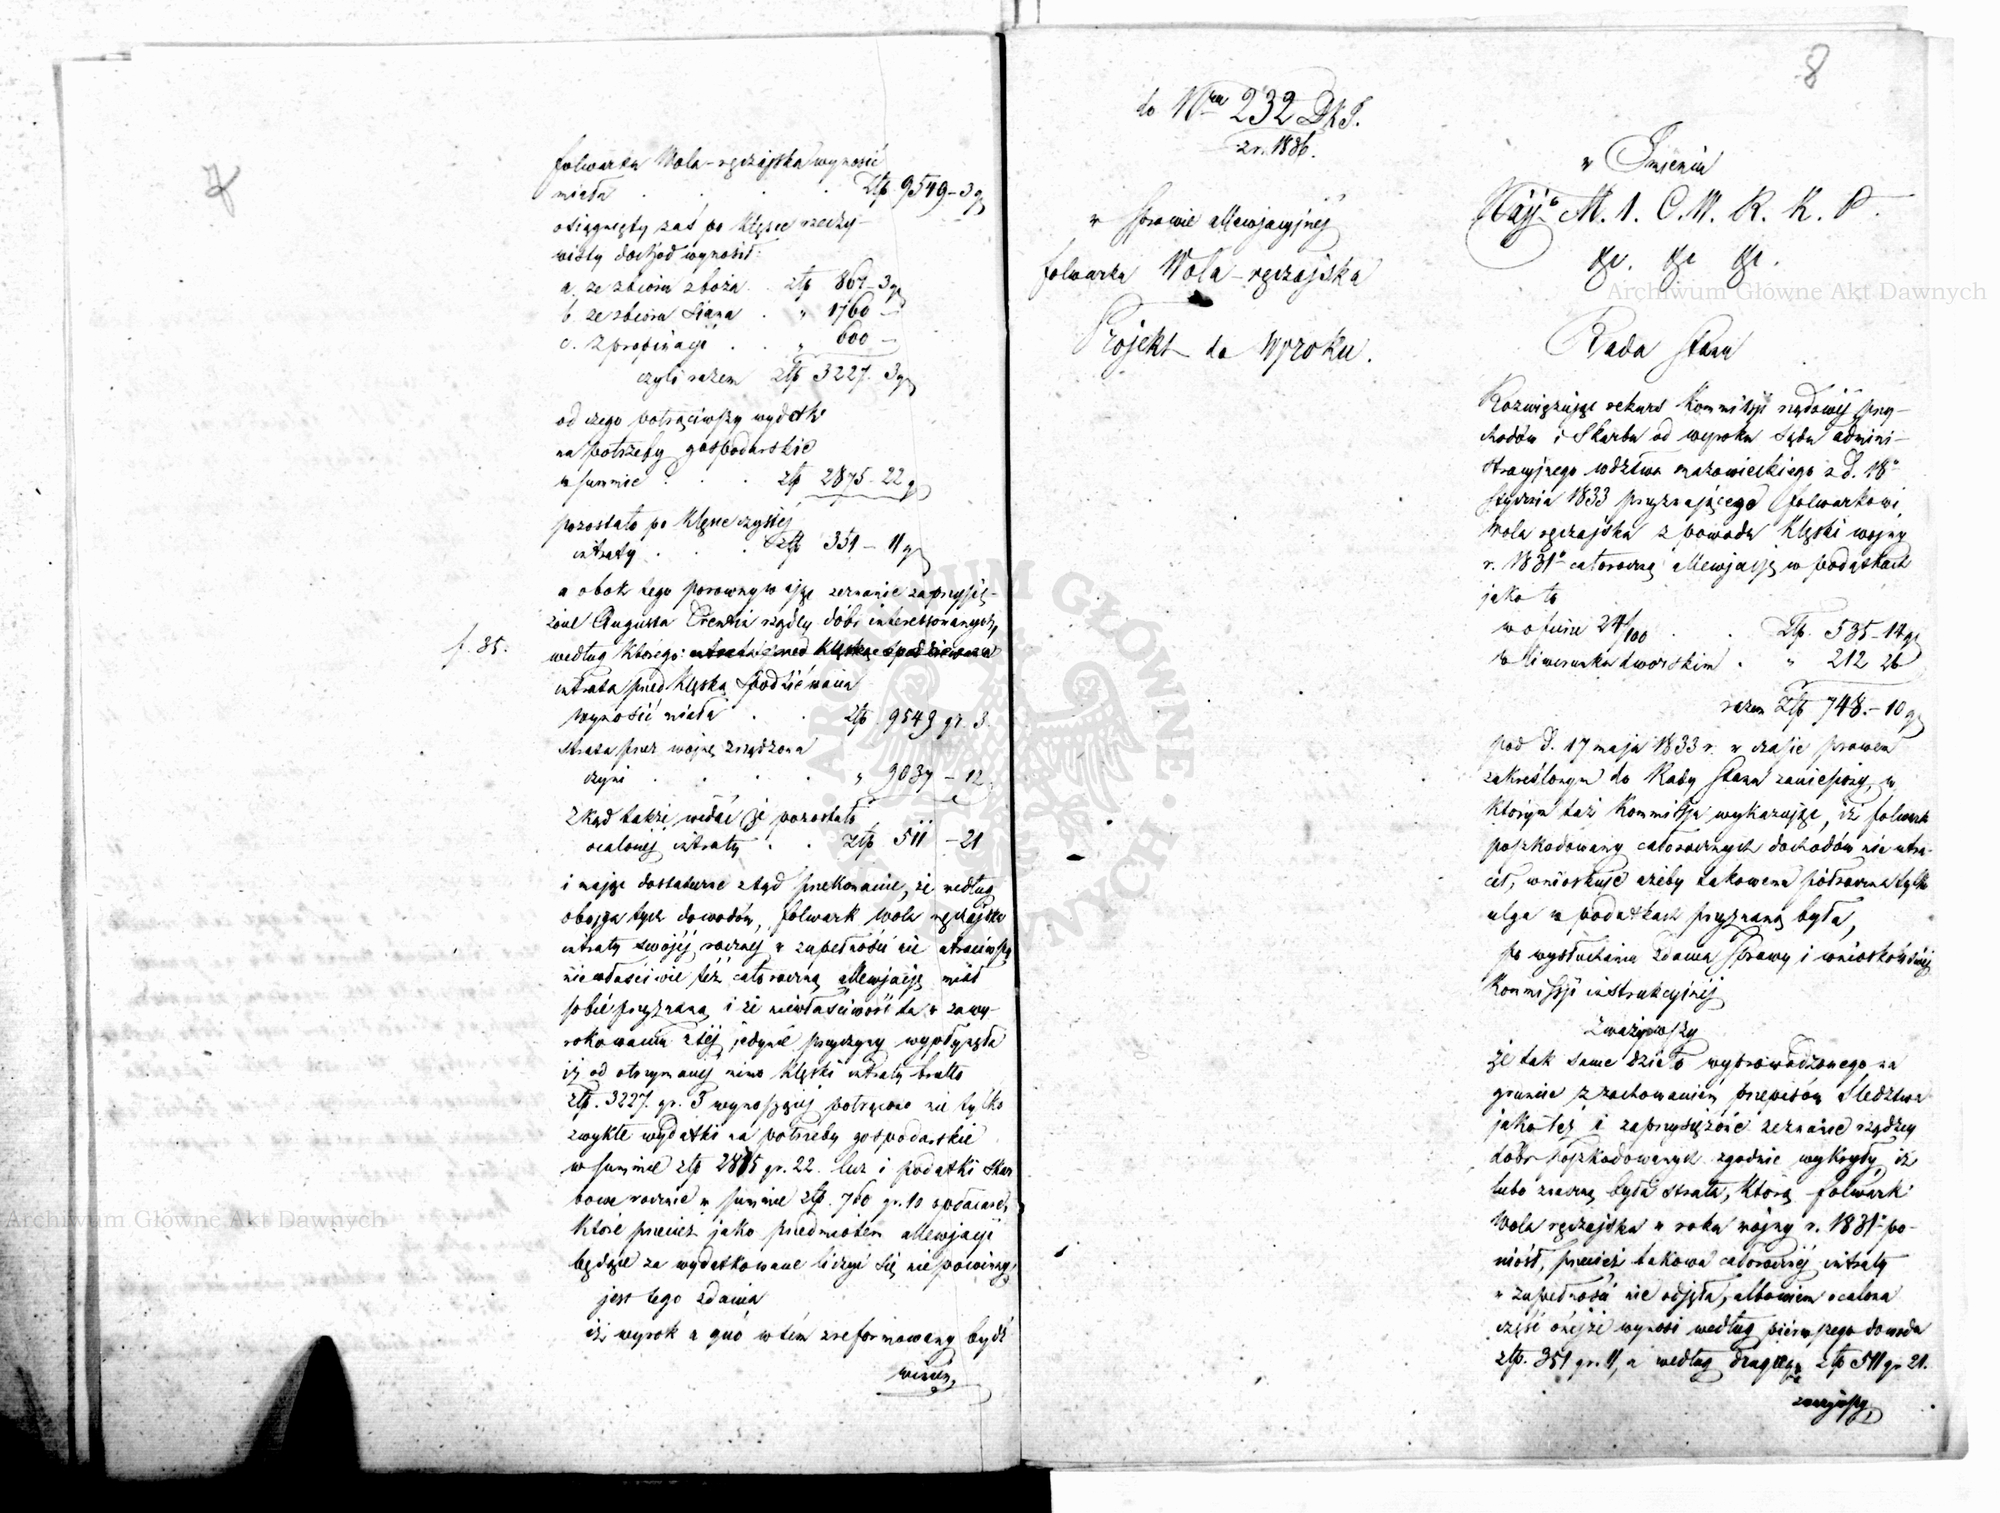 7
folwarku Wola-ręczajska wynosić
miała . . . . Złp 9549-3 gr
osiągnięty zaś po klęsce rzeczy-
wisty dochód wynosił:
a. ze zbioru zboża . . złp 867-3 gr
b. ze zbioru siana . „ 1760 —
c. z propinacji . . „ 600 —
czyli razem złp 3227. 3 gr
od czego potrąciwszy wydatki
na potrzeby gospodarskie
w summie . . . złp 2875-22 gr
pozostało po klęsce czystej
intraty . . . złp 351-11 gr
a obok tego porownywając zeznanie zaprzysię-
żone Augusta rządcy dóbr interessowanych,
f. 35.
według którego:
intrata przed klęską spodziéwana
wynosić miała . . złp. 9549 gr. 3.
strata przez wojnę zrządzona
czyni . . . . „ 9037-12.
Zkąd także widać że pozostało
ocalonej intraty . . Złp 511-21
i mając dostateczne ztąd przekonanie, że według
obojga tych dowodów, folwark Wola ręczajska
intraty swojéj rocznej w zupełności nie utraciwszy
niewłaściwie też całoroczną allewjacją miał
sobie przyznaną i że niewłaściwość ta w zawy-
rokowaniu z téj jedynie przyczyny wypłynęła
iż od otrzymanej mimo klęski intraty brutto
złp. 3227. gr. 3 wynoszącej potrącono nie tylko
zwykłe wydatki na potrzeby gospodarskie
w summie złp 2875 gr. 22. lecz i podatki skar
bowe rocznie w summie złp. 760 gr. 10 opłacane,
które przecież jako przedmiotem allewjacji
będące za wydatkowane liczyć się nie powinny,
jest tego zdania
iż wyrok a quo w tém zreformowany bydź
winien,
8
do Nru 232 DKS.
z r. 1836.
w sprawie allewjacyjnéj
folwarku Wola-ręczajska
Projekt do Wyroku.
w Imieniu
Nayjo M. 1. C. W. R. K. P.
&c. &c &c.
Rada Stanu
Rozwiązując rekurs Kommissji rządowéj przy-
chodów i Skarbu od wyroku Sądu admini-
stracyjnego wdztwa mazowieckiego z d. 18o
Stycznia 1833 przyznającego folwarkowi
Wola ręczajska z powodu klęski wojny
r. 1831o całoroczną allewjacją w podatkach
jako to
w ofiarze 24/100 . . Złp. 535-14 gr
w liwerunku dworskim . „ 212 26
razem Złp 748.-10 gr
pod d. 17 maja 1833 r. w czasie prawem
zakreślonym do Rady Stanu zaniesiony, w
którym taż Kommissja wykazując, iż folwark
poszkodowany całorocznych dochodów nie utra-
cił, wnioskuje ażeby takowemu półroczna tylko
ulga w podatkach przyznaną była,
po wysłuchaniu zdania sprawy i wniosków swéj
Kommissji instrukcyjnéj
Zważywszy
że tak same dzieło wyprowadzonego na
gruncie z zachowaniem przepisów śledztwa
jako też i zaprzysiężone zeznanie rządzcy
dóbr poszkodowanych zgodnie wykryły, iż
lubo znaczną była strata, którą folwark
Wola ręczajska w roku wojny r. 1831o po-
niósł, przecież takowa całorocznéj intraty
w zupełności nie odjęła, albowiem ocalona
część onéjże wynosi według piérwszego dowodu
złp. 351 gr. 11, a według drugiego złp 511 gr 21.
zważywszy
Archiwum Główne Akt Dawnych
Archiwum Główne Akt Dawnych
ARCHIWUM GŁÓWNE AKT DAWNYCH